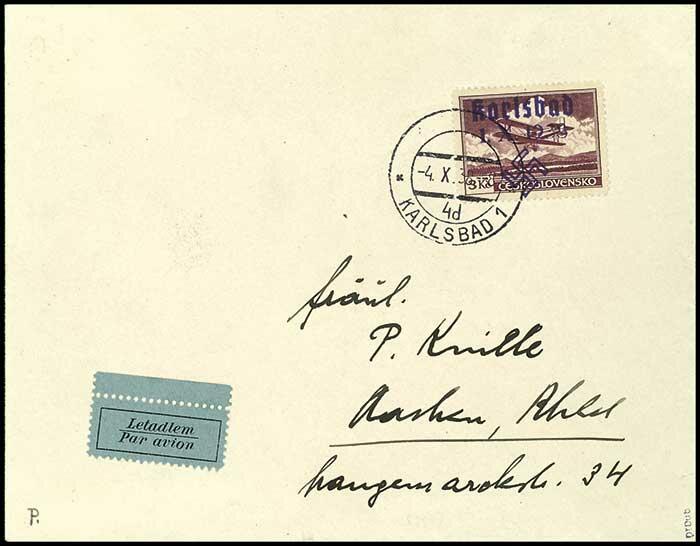 Karlsbad
1. X. 1938
3 Kč ČESKOSLOVENSKO
-4. X. 38
4d
* KARLSBAD 1
Fräul.
P. Knille
Aachen, Rhld
Langemarckstr. 34
Letadlem
Par avion
P.